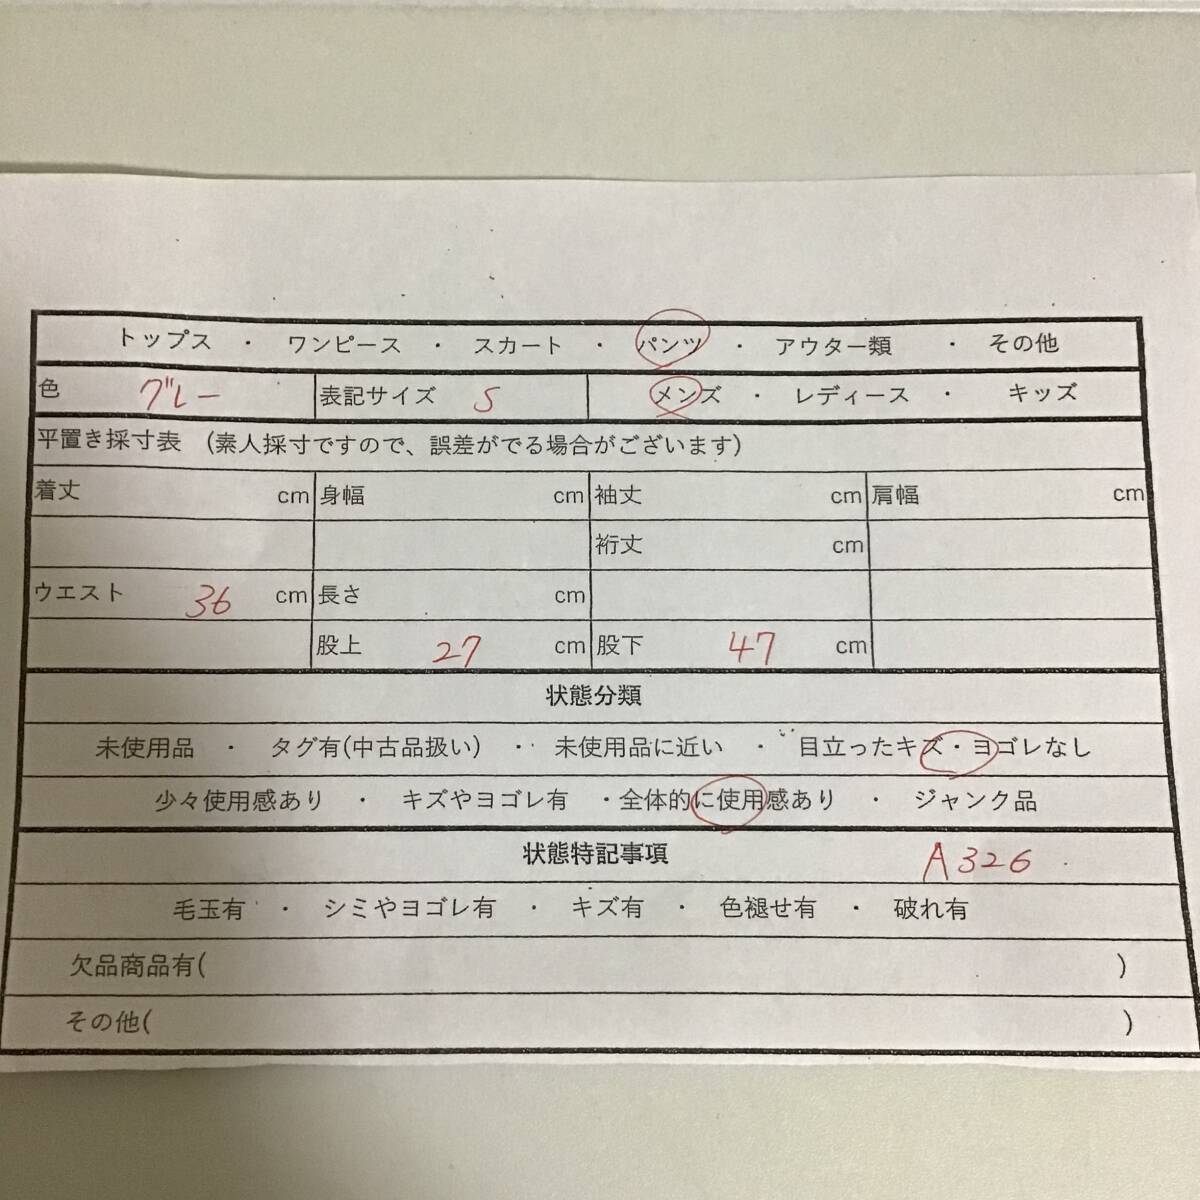 トップス ・ ワンピース ・ スカート ・ パンツ ・ アウター類 ・ その他
色 グレー 表記サイズ S メンズ ・ レディース ・ キッズ
平置き採寸表 (素人採寸ですので、誤差がでる場合がございます)
着丈 cm 身幅 cm 袖丈 cm 肩幅 cm
裄丈 cm
ウエスト 36 cm 長さ cm
股上 27 cm 股下 47 cm
状態分類
未使用品 ・ タグ有(中古品扱い) ・ 未使用品に近い ・ 目立ったキズ・ヨゴレなし
少々使用感あり ・ キズやヨゴレ有 ・全体的に使用感あり ・ ジャンク品
状態特記事項 A326
毛玉有 ・ シミやヨゴレ有 ・ キズ有 ・ 色褪せ有 ・ 破れ有
欠品商品有( )
その他( )